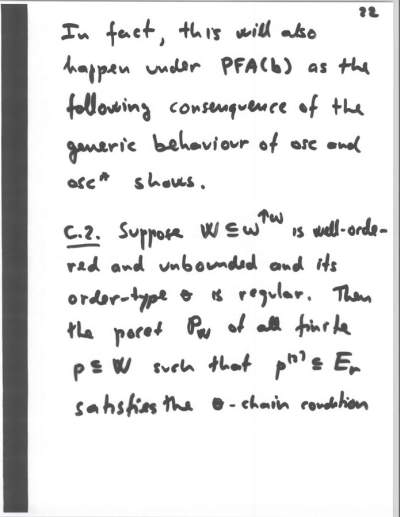 22
In fact, this will also
happen under PFA(b) as the
following consenquence of the
generic behaviour of osc and
osc* shows.
C.2. Suppose W ⊆ ω^↑ω is well-orde-
red and unbounded and its
order-type θ is regular. Then
the poset P_W of all finite
p ⊆ W such that p^[2] ⊆ E_n
satisfies the θ-chain condition